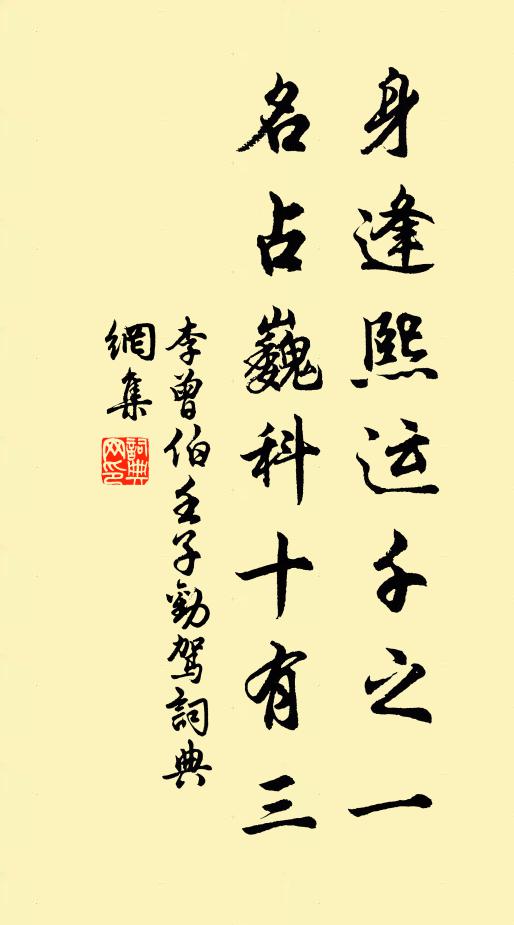 身逢熙运千之一
名占巍科十有三
李曾伯壬子勸駕詞典
網集
詞典网印